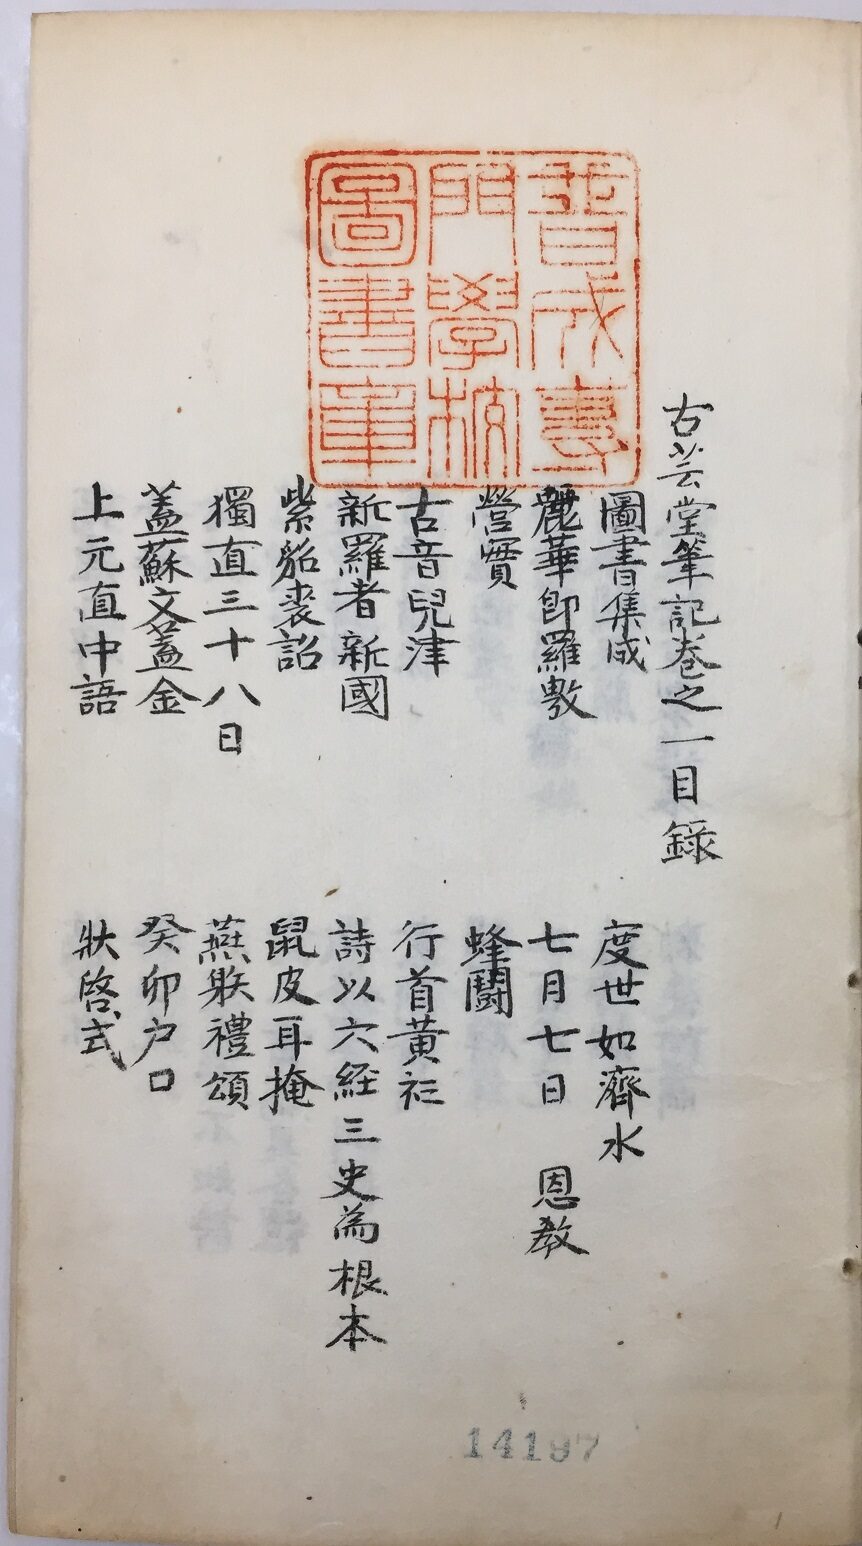 普成專
門學校
圖書章
古芸堂筆記卷之一目錄
圖書集成　度世如濟水
麗華卽羅敷　七月七日　恩教
營實　蜂鬪
古音兒津　行首黃衫
新羅者新國　詩以六経三史為根本
紫貂裘詔　鼠皮耳掩
獨直三十八日　燕䠶禮頌
蓋蘇文蓋金　癸卯户口
上元直中語　狀啓式
14197